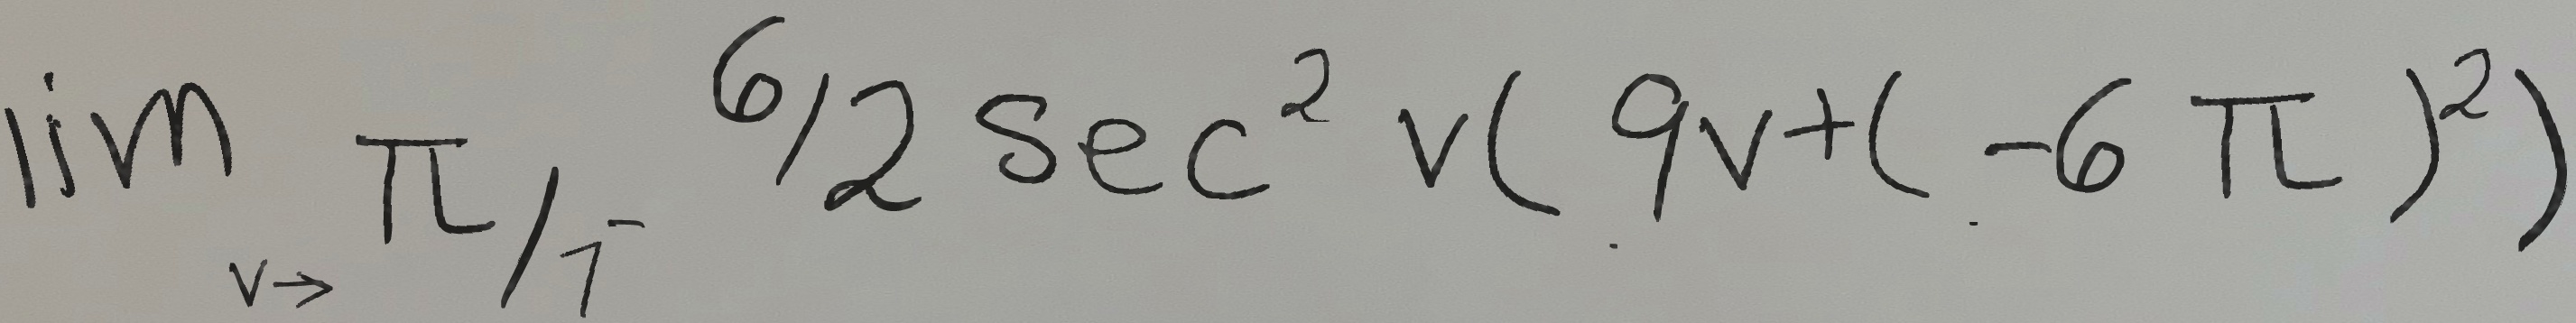 lim v→ π/1⁻ 6/2 sec² v( 9v+( -6 π )²)